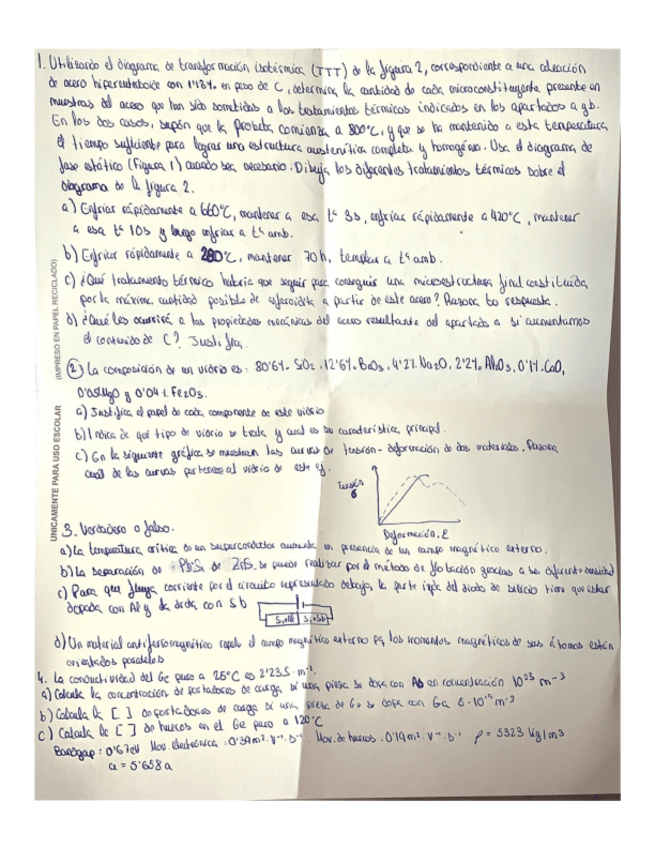 1. Utilizando el diagrama de transformación isotérmica (TTT) de la figura 2, correspondiente a una aleación
de acero hipereutectoide con 1'13% en peso de C, determina la cantidad de cada microconstituyente presente en
muestras del acero que han sido sometidas a los tratamientos térmicos indicados en los apartados a y b.
En los dos casos, supón que la probeta comienza a 800°C, y que se ha mantenido a esta temperatura
el tiempo suficiente para lograr una estructura austenítica completa y homogénea. Usa el diagrama de
fase estático (Figura 1) cuando sea necesario. Dibuja los diferentes tratamientos térmicos sobre el
diagrama de la figura 2.
a) Enfriar rápidamente a 660°C, mantener a esa tª 3s, enfriar rápidamente a 420°C, mantener
a esa tª 10s y luego enfriar a tª amb.
b) Enfriar rápidamente a °C, mantener 70h, templar a tª amb.
c) ¿Qué tratamiento térmico habría que seguir para conseguir una microestructura final constituida
por la máxima cantidad posible de esferoidita a partir de este acero? Razona tu respuesta.
d) ¿Qué les ocurrirá a las propiedades mecánicas del acero resultante del apartado a si aumentamos
el contenido de C? Justifica.
(IMPRESO EN PAPEL RECICLADO)
UNICAMENTE PARA USO ESCOLAR
2) La composición de un vidrio es: 80'6% SiO2, 12'6% B2O3, 4'2% Na2O, 2'2% Al2O3, 0'1% CaO,
0'05% MgO y 0'04% Fe2O3.
a) Justifica el papel de cada componente de este vidrio
b) Indica de qué tipo de vidrio se trata y cual es su característica principal.
c) En la siguiente gráfica se muestran las curvas de tensión - deformación de dos materiales. Razona
cuál de las curvas pertenece al vidrio de este ej.
Tensión
σ
Deformación, ε
3. Verdadero o falso.
a) La temperatura crítica de un superconductor aumenta en presencia de un campo magnético externo.
b) La separación de PbS de ZnS se puede realizar por el método de flotación gracias a su diferente densidad
c) Para que fluya corriente por el circuito representado debajo, la parte izqda del diodo de silicio tiene que estar
dopada con Al y la drcha con Sb
Si+Al Si+Sb
d) Un material antiferromagnético repele el campo magnético externo pq los momentos magnéticos de sus átomos están
orientados paralelos
4. La conductividad del Ge puro a 25°C es 2'23 S·m⁻¹.
a) Calcula la concentración de portadores de carga si una pieza se dopa con As en concentración 10²³ m⁻³
b) Calcula la [ ] de portadores de carga si una pieza de Ge se dopa con Ga 5·10¹⁵ m⁻³
c) Calcula la [ ] de huecos en el Ge puro a 120°C
Bandgap: 0'67eV Mov. electrónica: 0'39 m²·V⁻¹·s⁻¹. Mov. de huecos: 0'19 m²·V⁻¹·s⁻¹ ρ = 5323 kg/m3
a = 5'658